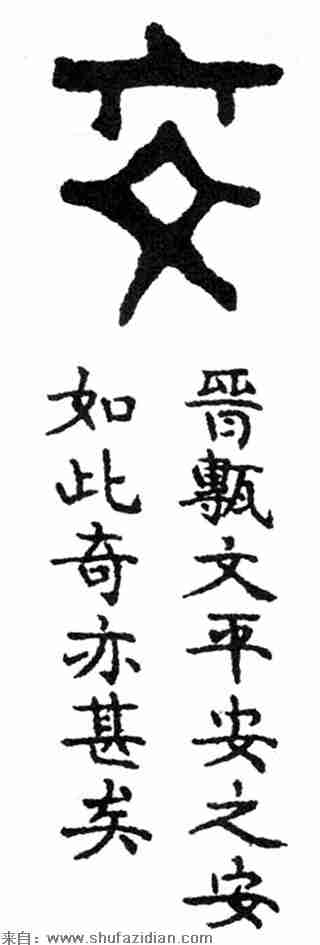 安
晋甎文平安之安
如此奇亦甚矣
来自：www.shufazidian.com